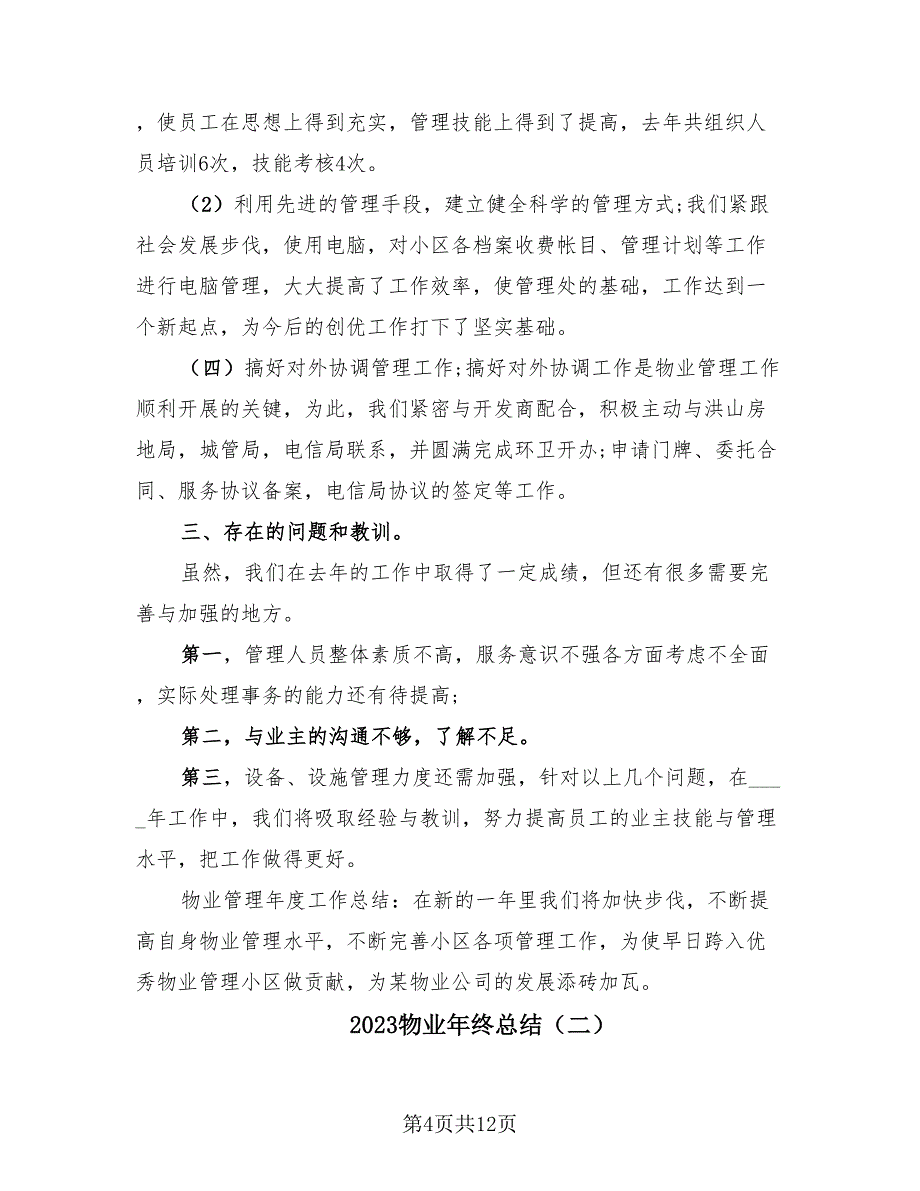 ，使员工在思想上得到充实，管理技能上得到了提高，去年共组织人
员培训6次，技能考核4次。
（2）利用先进的管理手段，建立健全科学的管理方式;我们紧跟
社会发展步伐，使用电脑，对小区各档案收费帐目、管理计划等工作
进行电脑管理，大大提高了工作效率，使管理处的基础，工作达到一
个新起点，为今后的创优工作打下了坚实基础。
（四）搞好对外协调管理工作;搞好对外协调工作是物业管理工作
顺利开展的关键，为此，我们紧密与开发商配合，积极主动与洪山房
地局，城管局，电信局联系，并圆满完成环卫开办;申请门牌、委托合
同、服务协议备案，电信局协议的签定等工作。
三、存在的问题和教训。
虽然，我们在去年的工作中取得了一定成绩，但还有很多需要完
善与加强的地方。
第一，管理人员整体素质不高，服务意识不强各方面考虑不全面
，实际处理事务的能力还有待提高;
第二，与业主的沟通不够，了解不足。
第三，设备、设施管理力度还需加强，针对以上几个问题，在___
_年工作中，我们将吸取经验与教训，努力提高员工的业主技能与管理
水平，把工作做得更好。
物业管理年度工作总结：在新的一年里我们将加快步伐，不断提
高自身物业管理水平，不断完善小区各项管理工作，为使早日跨入优
秀物业管理小区做贡献，为某物业公司的发展添砖加瓦。
2023物业年终总结（二）
第4页共12页